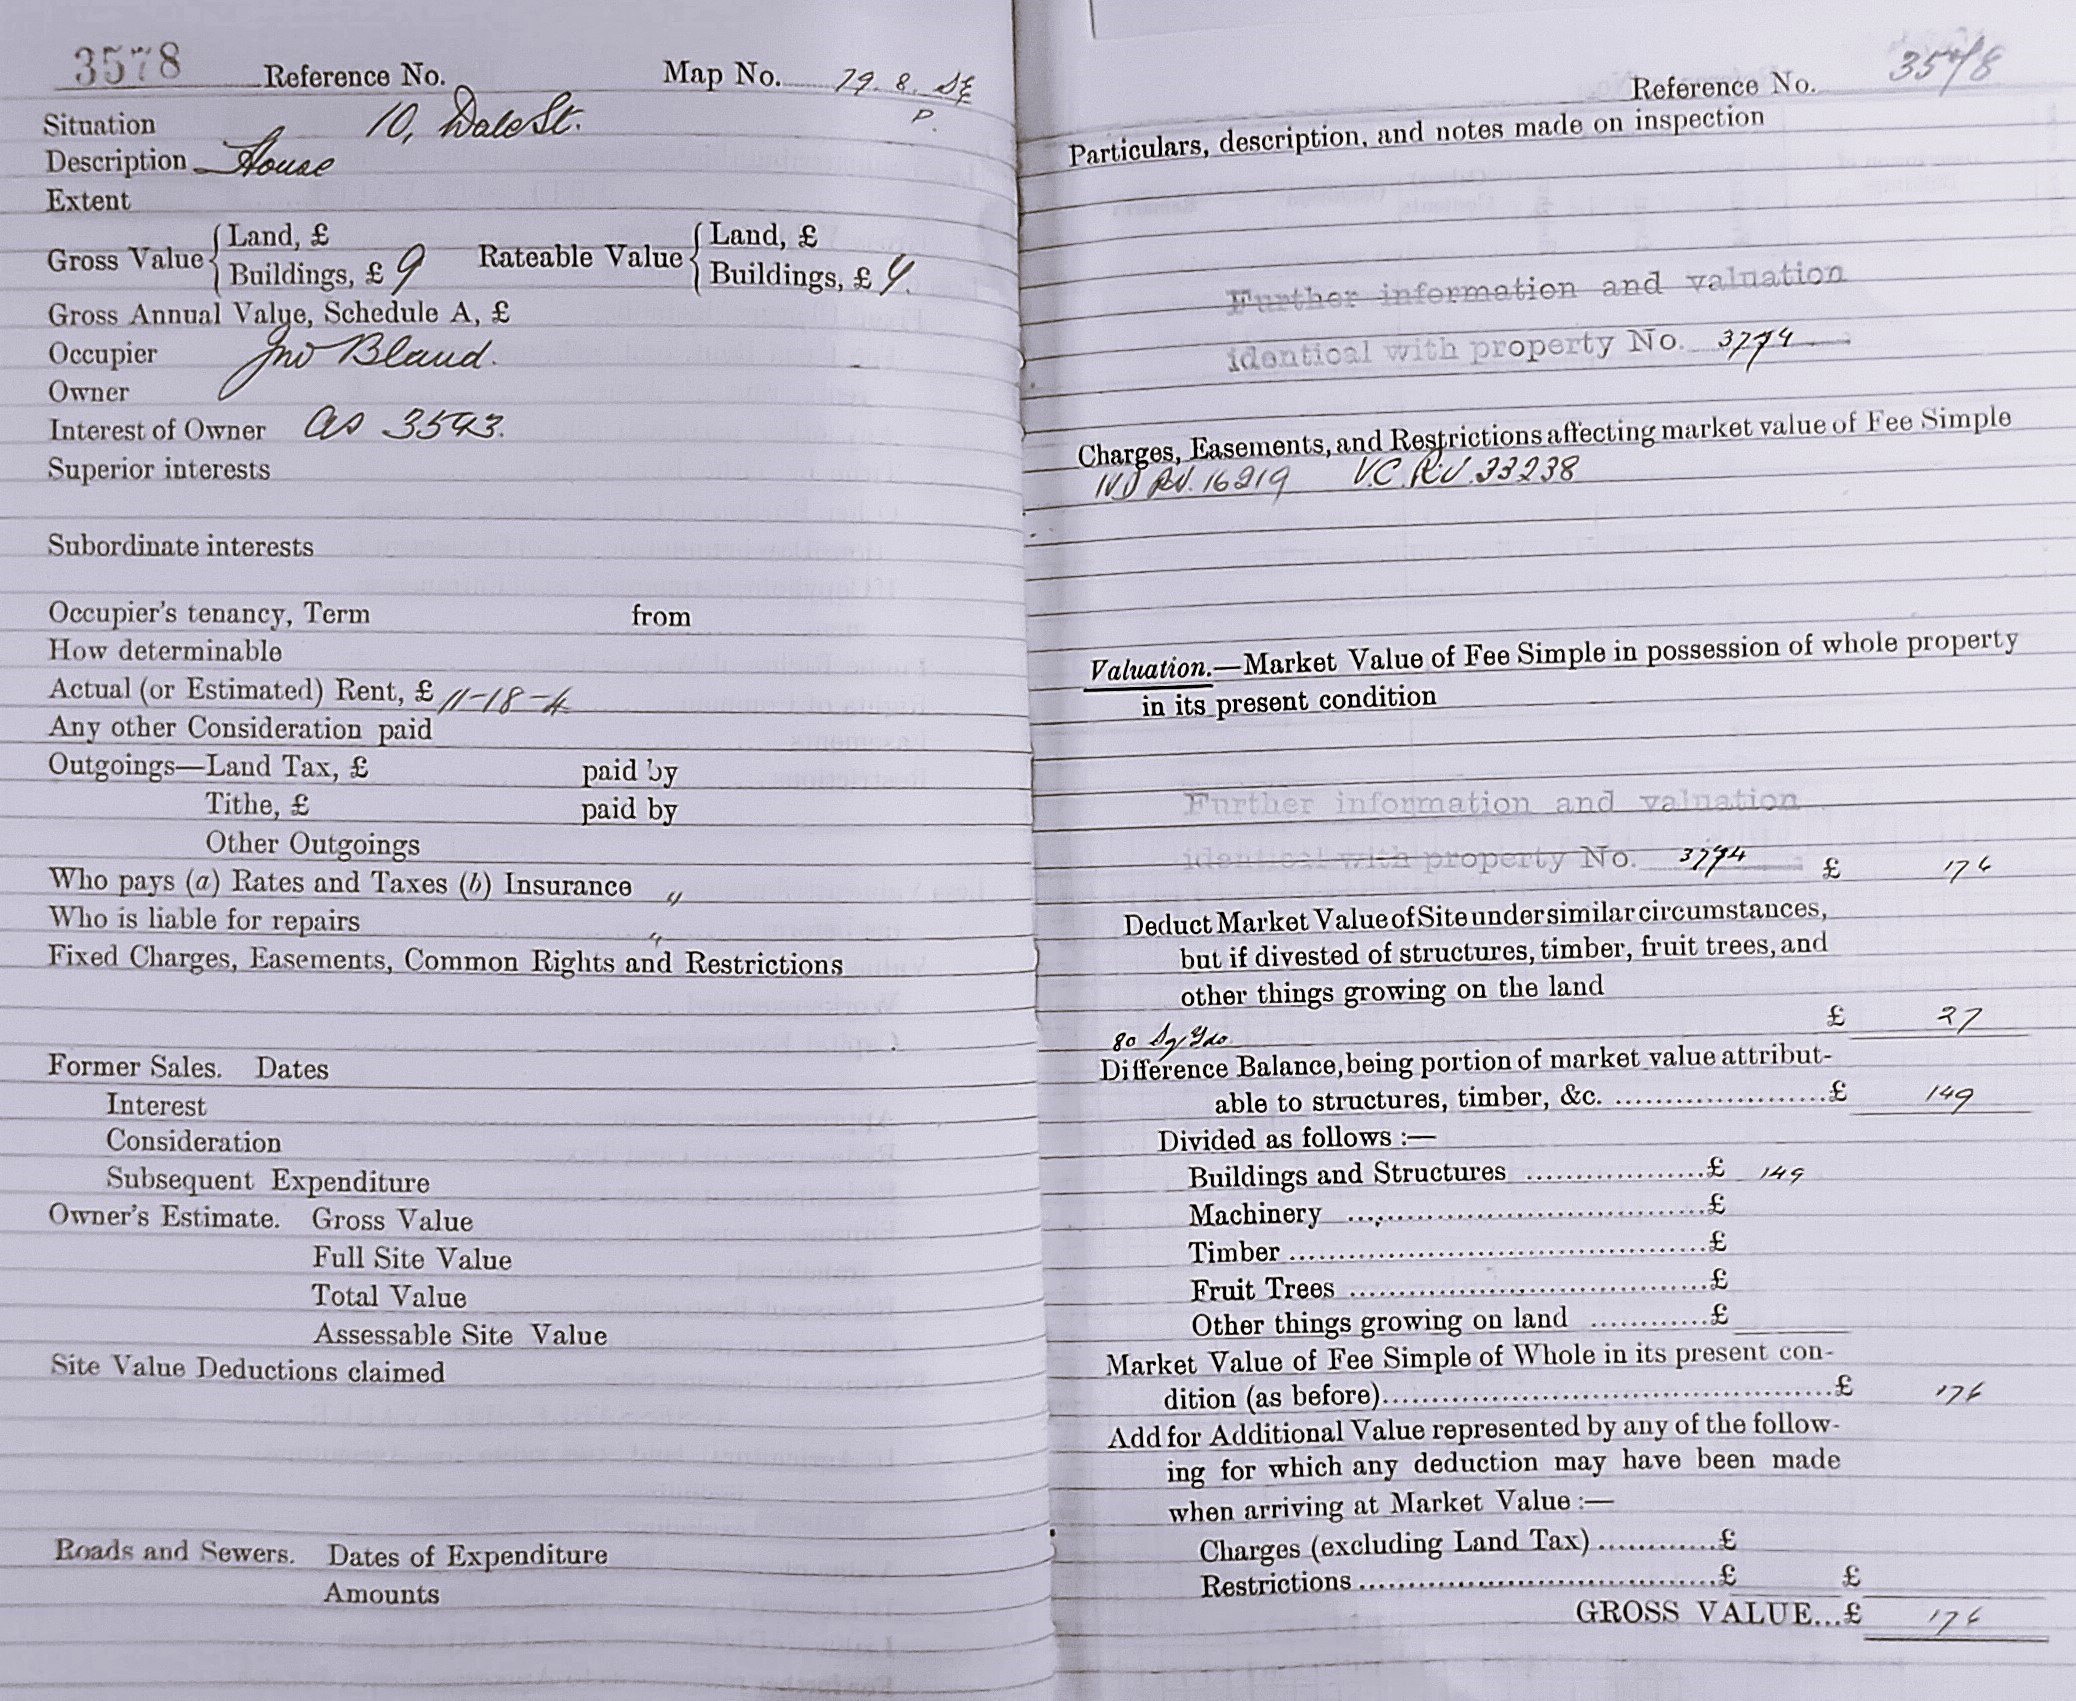 3578 Reference No. Map No. 79. 8. SE
P.
Situation 10, Dale St.
Description House
Extent
Gross Value { Land, £
Buildings, £ 9
Rateable Value { Land, £
Buildings, £ 7.
Gross Annual Value, Schedule A, £
Occupier Jno Bland.
Owner
Interest of Owner as 3543.
Superior interests
Subordinate interests
Occupier's tenancy, Term from
How determinable
Actual (or Estimated) Rent, £ 11-18-4
Any other Consideration paid
Outgoings—Land Tax, £ paid by
Tithe, £ paid by
Other Outgoings
Who pays (a) Rates and Taxes (b) Insurance "
Who is liable for repairs "
Fixed Charges, Easements, Common Rights and Restrictions
Former Sales. Dates
Interest
Consideration
Subsequent Expenditure
Owner's Estimate. Gross Value
Full Site Value
Total Value
Assessable Site Value
Site Value Deductions claimed
Roads and Sewers. Dates of Expenditure
Amounts
Reference No. 3578
Particulars, description, and notes made on inspection
Further information and valuation
identical with property No. 3774
Charges, Easements, and Restrictions affecting market value of Fee Simple
16219 V.C. 33238
Valuation.—Market Value of Fee Simple in possession of whole property
in its present condition
Further information and valuation
identical with property No. 3774 £ 176
Deduct Market Value of Site under similar circumstances,
but if divested of structures, timber, fruit trees, and
other things growing on the land
£ 27
80 Sq Yds.
Difference Balance, being portion of market value attribut-
able to structures, timber, &c. £ 149
Divided as follows :—
Buildings and Structures £ 149
Machinery £
Timber £
Fruit Trees £
Other things growing on land £
Market Value of Fee Simple of Whole in its present con-
dition (as before) £ 176
Add for Additional Value represented by any of the follow-
ing for which any deduction may have been made
when arriving at Market Value :—
Charges (excluding Land Tax) £
Restrictions £ £
GROSS VALUE...£ 176